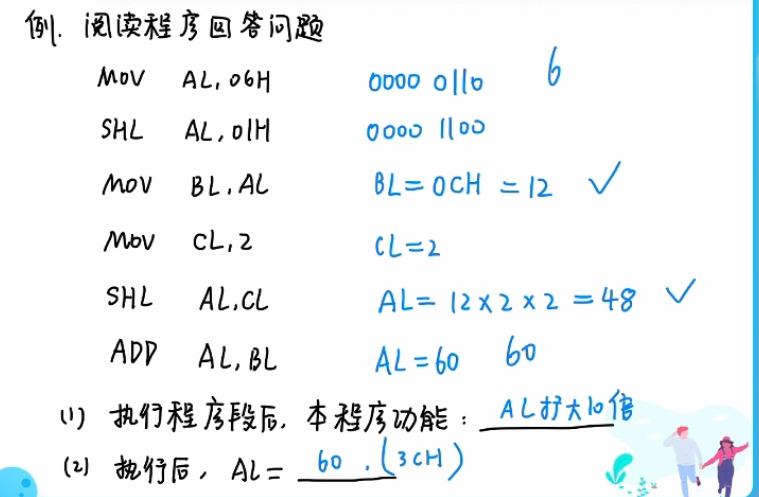 例. 阅读程序回答问题
MOV AL, 06H 0000 0110 6
SHL AL, 01H 0000 1100
MOV BL, AL BL=0CH =12 ✓
MOV CL, 2 CL=2
SHL AL, CL AL= 12×2×2 =48 ✓
ADD AL, BL AL=60 60
(1) 执行程序段后, 本程序功能: AL扩大10倍
(2) 执行后, AL= 60 . (3CH)